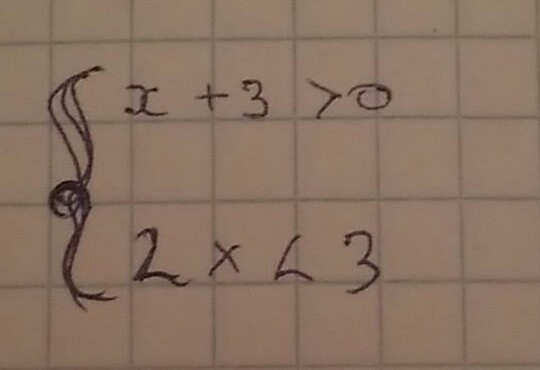 x + 3 > 0
2x < 3